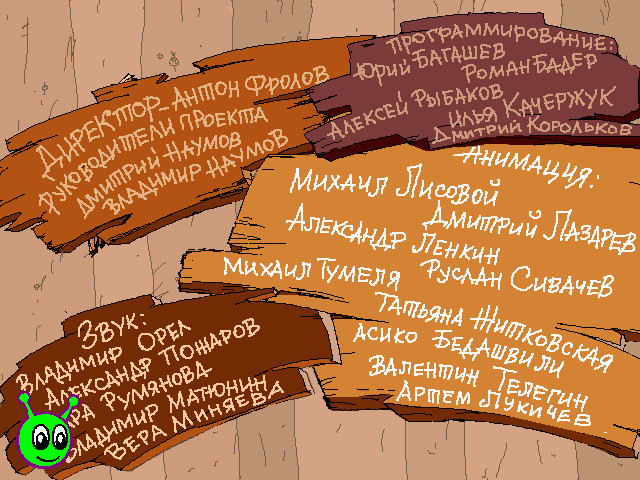 Директор - Антон Фролов
Руководители проекта
Дмитрий Наумов
Владимир Наумов
Программирование:
Юрий Багашев
Роман Бадер
Алексей Рыбаков
Илья Качержук
Дмитрий Корольков
Анимация:
Михаил Лисовой
Дмитрий Лазарев
Александр Ленкин
Михаил Тумеля Руслан Сивачев
Татьяна Житковская
Асико Бедашвили
Валентин Телегин
Артем Лукичев
Звук:
Владимир Орел
Александр Пожаров
Румянова
Владимир Матюнин
Вера Миняева